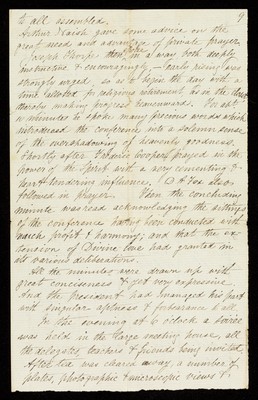 9
to all assembled.
Arthur Naish gave some advice on the
great need and advantage of private prayer.
Joseph Thorp then spoke in a way both deeply
instructive & encouragingly, – early rising was
strongly urged, so as to begin the day with a
time allotted for religious retirement, as in the closet
thereby making progress heavenwards. For abt
10 minutes he spoke many precious words which
introduced the conference into a solemn sense
of the overshadowing of heavenly goodness.
Shortly after Frederic Cooper prayed in the
power of the Spirit with a very cementing &
heart tendering influence. Fox also
followed in prayer. Then the concluding
minute was read acknowledging the sittings
of the conference had been conducted with
much profit & harmony, and that the ex-
tension of Divine love had granted in
its various deliberations.
All the minutes were drawn up with
great conciseness & yet very expressive.
And the president had managed his part
with singular aptness & forbearance too.
In the evening at 6 o'clock a soiree
was held in the large meeting house, all
the delegates, teachers & friends being invited.
After tea was cleared away, a number of
plates, photographic & microscopic views &